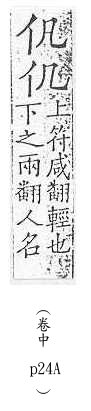 㐲仉
上符咸翻輕也
下之兩翻人名
（卷中
p24A
）